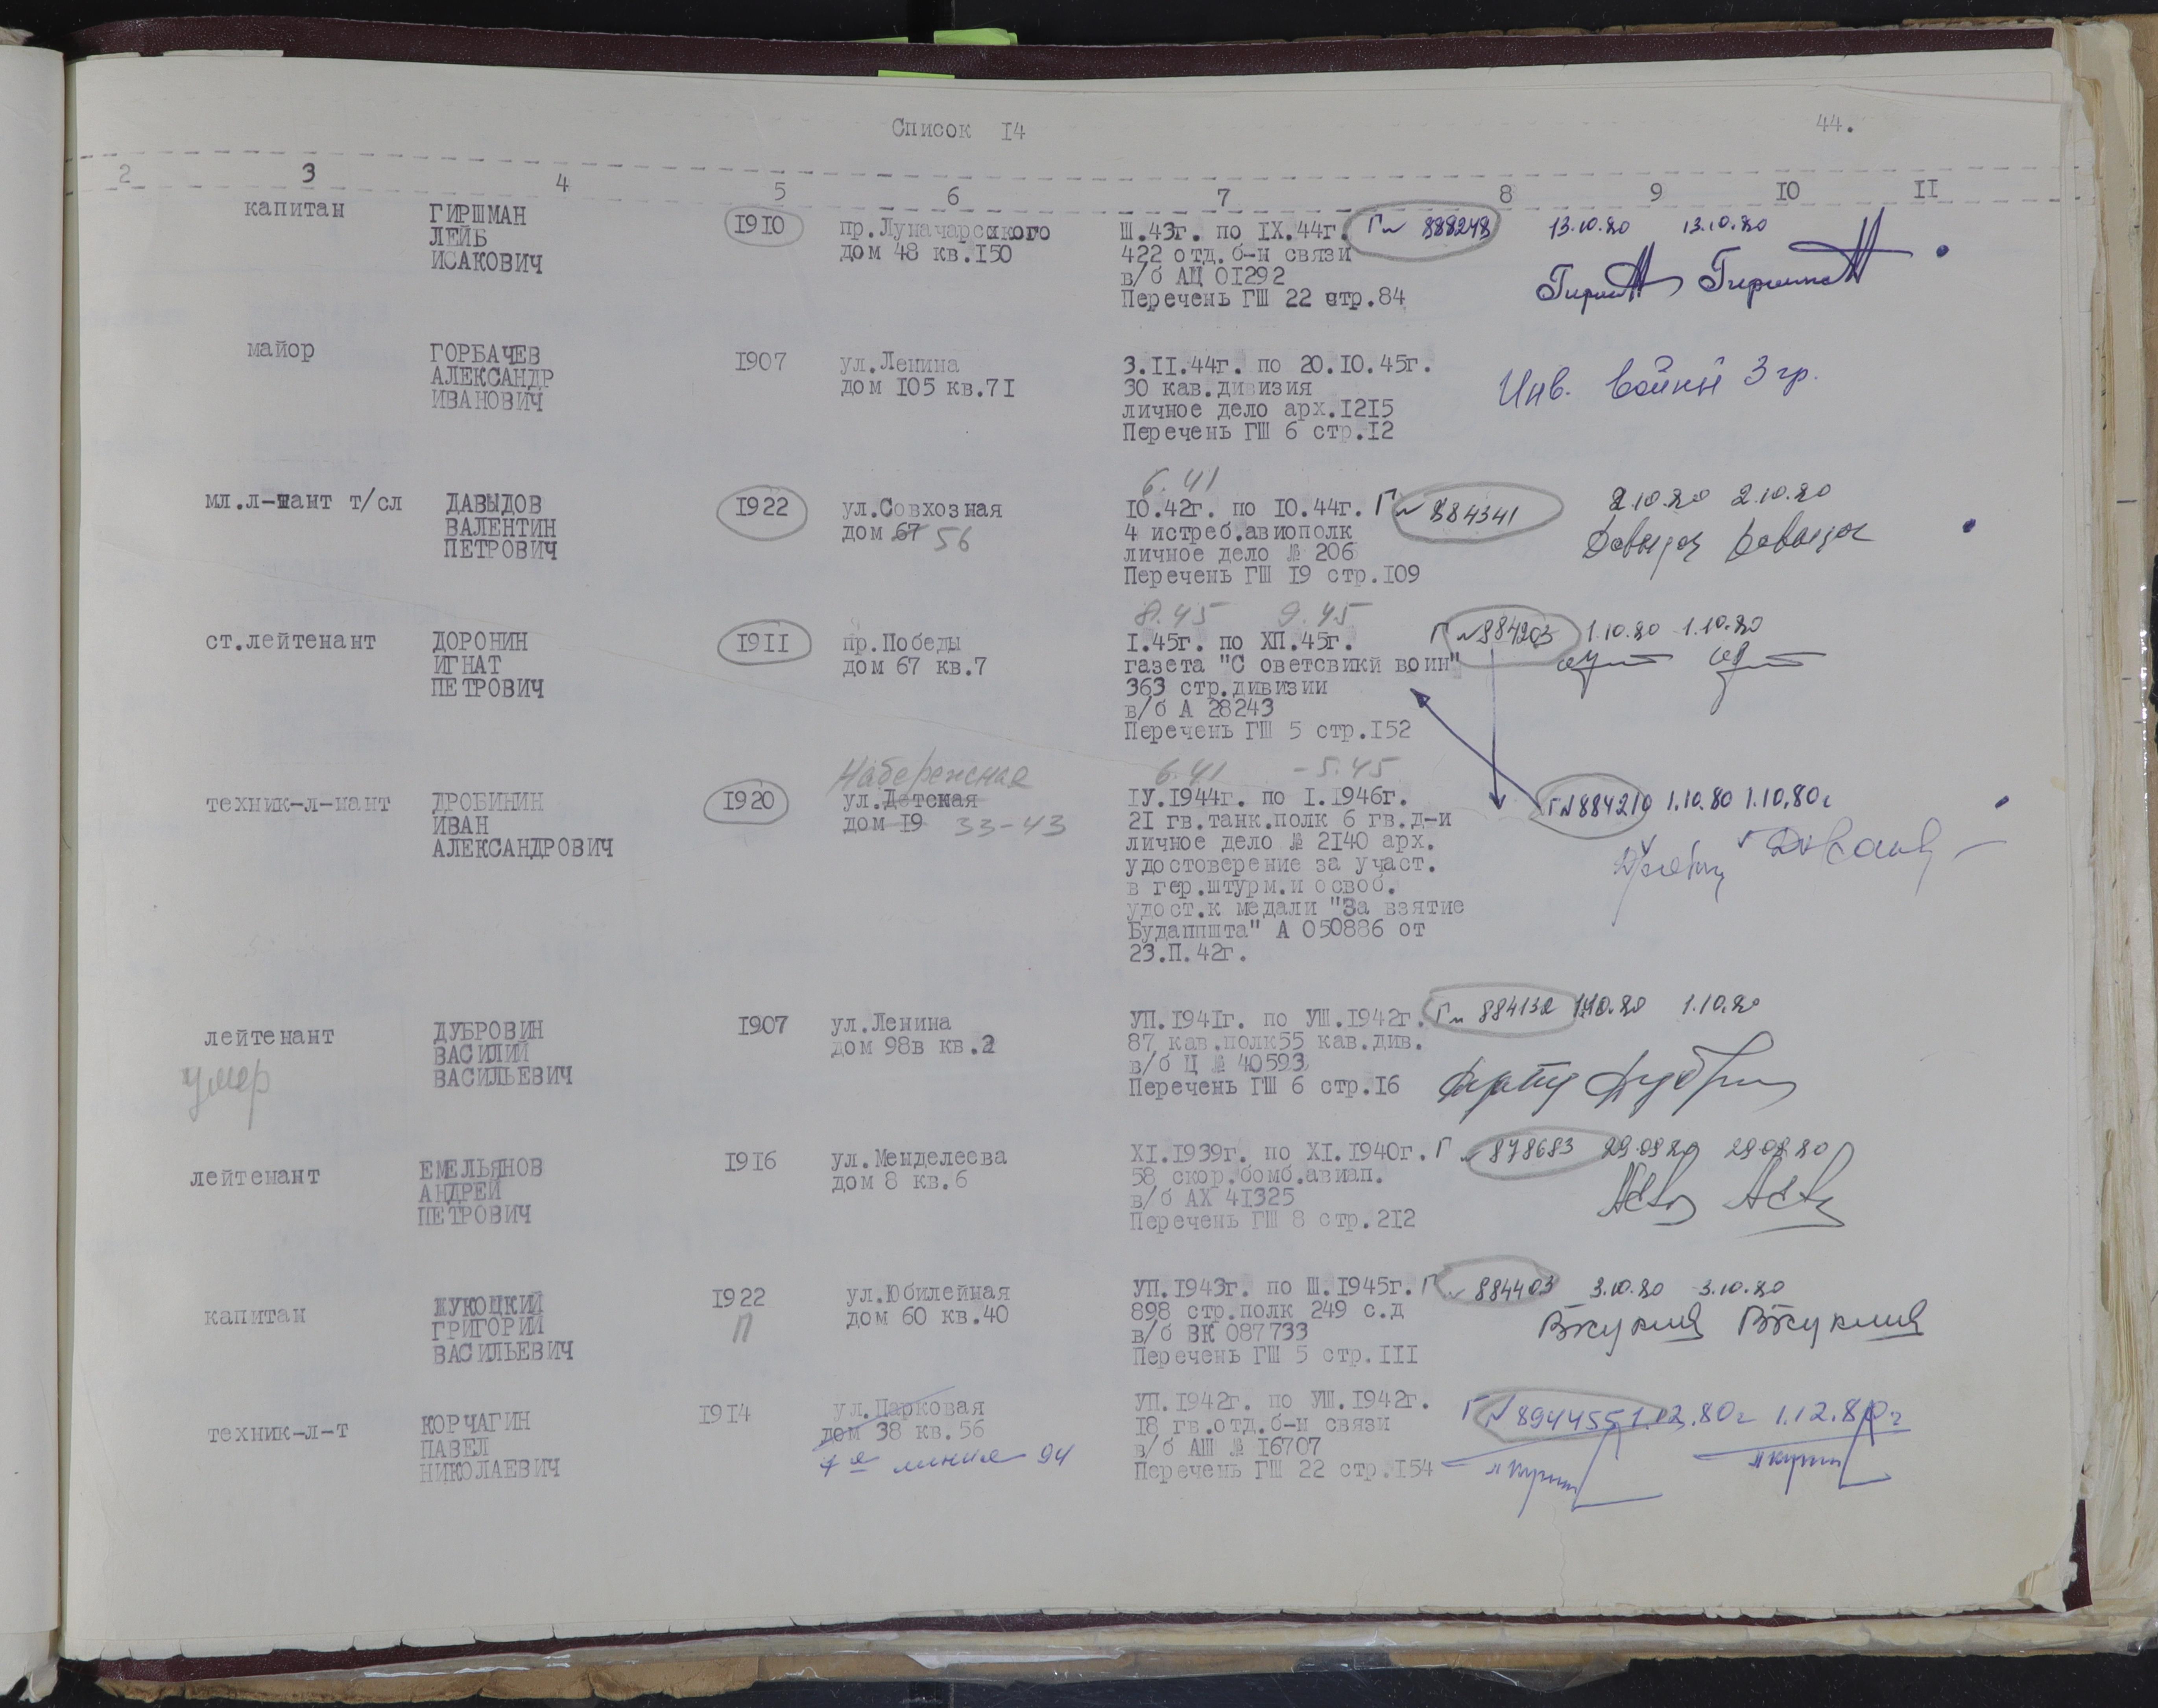 Список I4 44.
2 3 4 5 6 7 8 9 IO II
капитан ГИРШМАН I9IO пр.Луначарсского Ш.43г. по IX.44г. Г№ 888248 13.10.80 13.10.80
ЛЕЙБ дом 48 кв.I50 422 отд.б-н связи
ИСАКОВИЧ в/б АЦ OI292
Перечень ГШ 22 стр.84
майор ГОРБАЧЕВ I907 ул.Ленина 3.II.44г. по 20.IO.45г. Инв. войны 3 гр.
АЛЕКСАНДР дом IO5 кв.7I 30 кав.дивизия
ИВАНОВИЧ личное дело арх.I2I5
Перечень ГШ 6 стр.I2
6.41
мл.л-нант т/сл ДАВЫДОВ I922 ул.Совхозная IO.42г. по IO.44г. Г№ 884341 2.10.80 2.10.80
ВАЛЕНТИН дом 67 56 4 истреб.авиополк
ПЕТРОВИЧ личное дело № 206
Перечень ГШ I9 стр.IO9
8.45 9.45
ст.лейтенант ДОРОНИН I9II пр.Победы I.45г. по ХП.45г. Г№884203 1.10.80 1.10.80
ИГНАТ дом 67 кв.7 газета "С оветсвикй воин"
ПЕТРОВИЧ 363 стр.дивизии
в/б А 28243
Перечень ГШ 5 стр.I52
Набережная 6.41 -5.45
техник-л-нант ДРОБИНИН I920 ул.Детская IУ.I944г. по I.I946г. Г№884210 1.10.80 1.10.80г
ИВАН дом I9 33-43 2I гв.танк.полк 6 гв.д-и
АЛЕКСАНДРОВИЧ личное дело № 2I40 арх.
удостоверение за участ.
в гер.штурм.и освоб.
удост.к медали "За взятие
Будаппшта" А 050886 от
23.П.42г.
лейтенант ДУБРОВИН I907 ул.Ленина УП.I94Iг. по УШ.I942г. Г№ 884132 1.10.80 1.10.80
умер ВАСИЛИЙ дом 98в кв.2 87 кав.полк55 кав.див.
ВАСИЛЬЕВИЧ в/б Ц № 40593
Перечень ГШ 6 стр.I6
лейтенант ЕМЕЛЬЯНОВ I9I6 ул.Менделеева XI.I939г. по XI.I940г. Г№ 878683 29.09.80 29.09.80
АНДРЕЙ дом 8 кв.6 58 скор.бомб.авиап.
ПЕТРОВИЧ в/б АХ 4I325
Перечень ГШ 8 стр.2I2
капитан ЖУКОЦКИЙ I922 ул.Юбилейная УП.I943г. по Ш.I945г. Г№ 884403 3.10.80 3.10.80
ГРИГОРИЙ П дом 60 кв.40 898 стр.полк 249 с.д
ВАСИЛЬЕВИЧ в/б ВК 087733
Перечень ГШ 5 стр.III
техник-л-т КОРЧАГИН I9I4 ул.Парковая УП.I942г. по УШ.I942г. Г№894455 1.12.80г 1.12.80г
ПАВЕЛ дом 38 кв.56 I8 гв.отд.б-н связи
НИКОЛАЕВИЧ линия 94 в/б АШ № I6707
Перечень ГШ 22 стр.I54